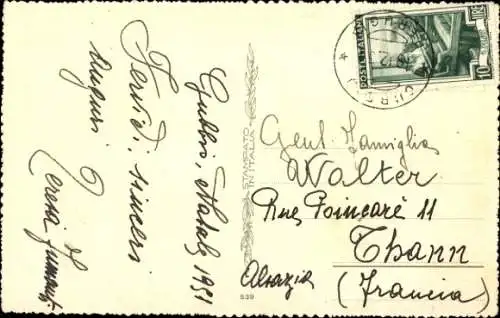 Gubbio, Natale 1951
Fervidi, sinceri
auguri
STAMPATO
IN ITALIA
539
POSTE ITALIANE
10
Gent. Famiglia
Walter
Rue Poincarè 11
Thann
Alsazia
(Francia)